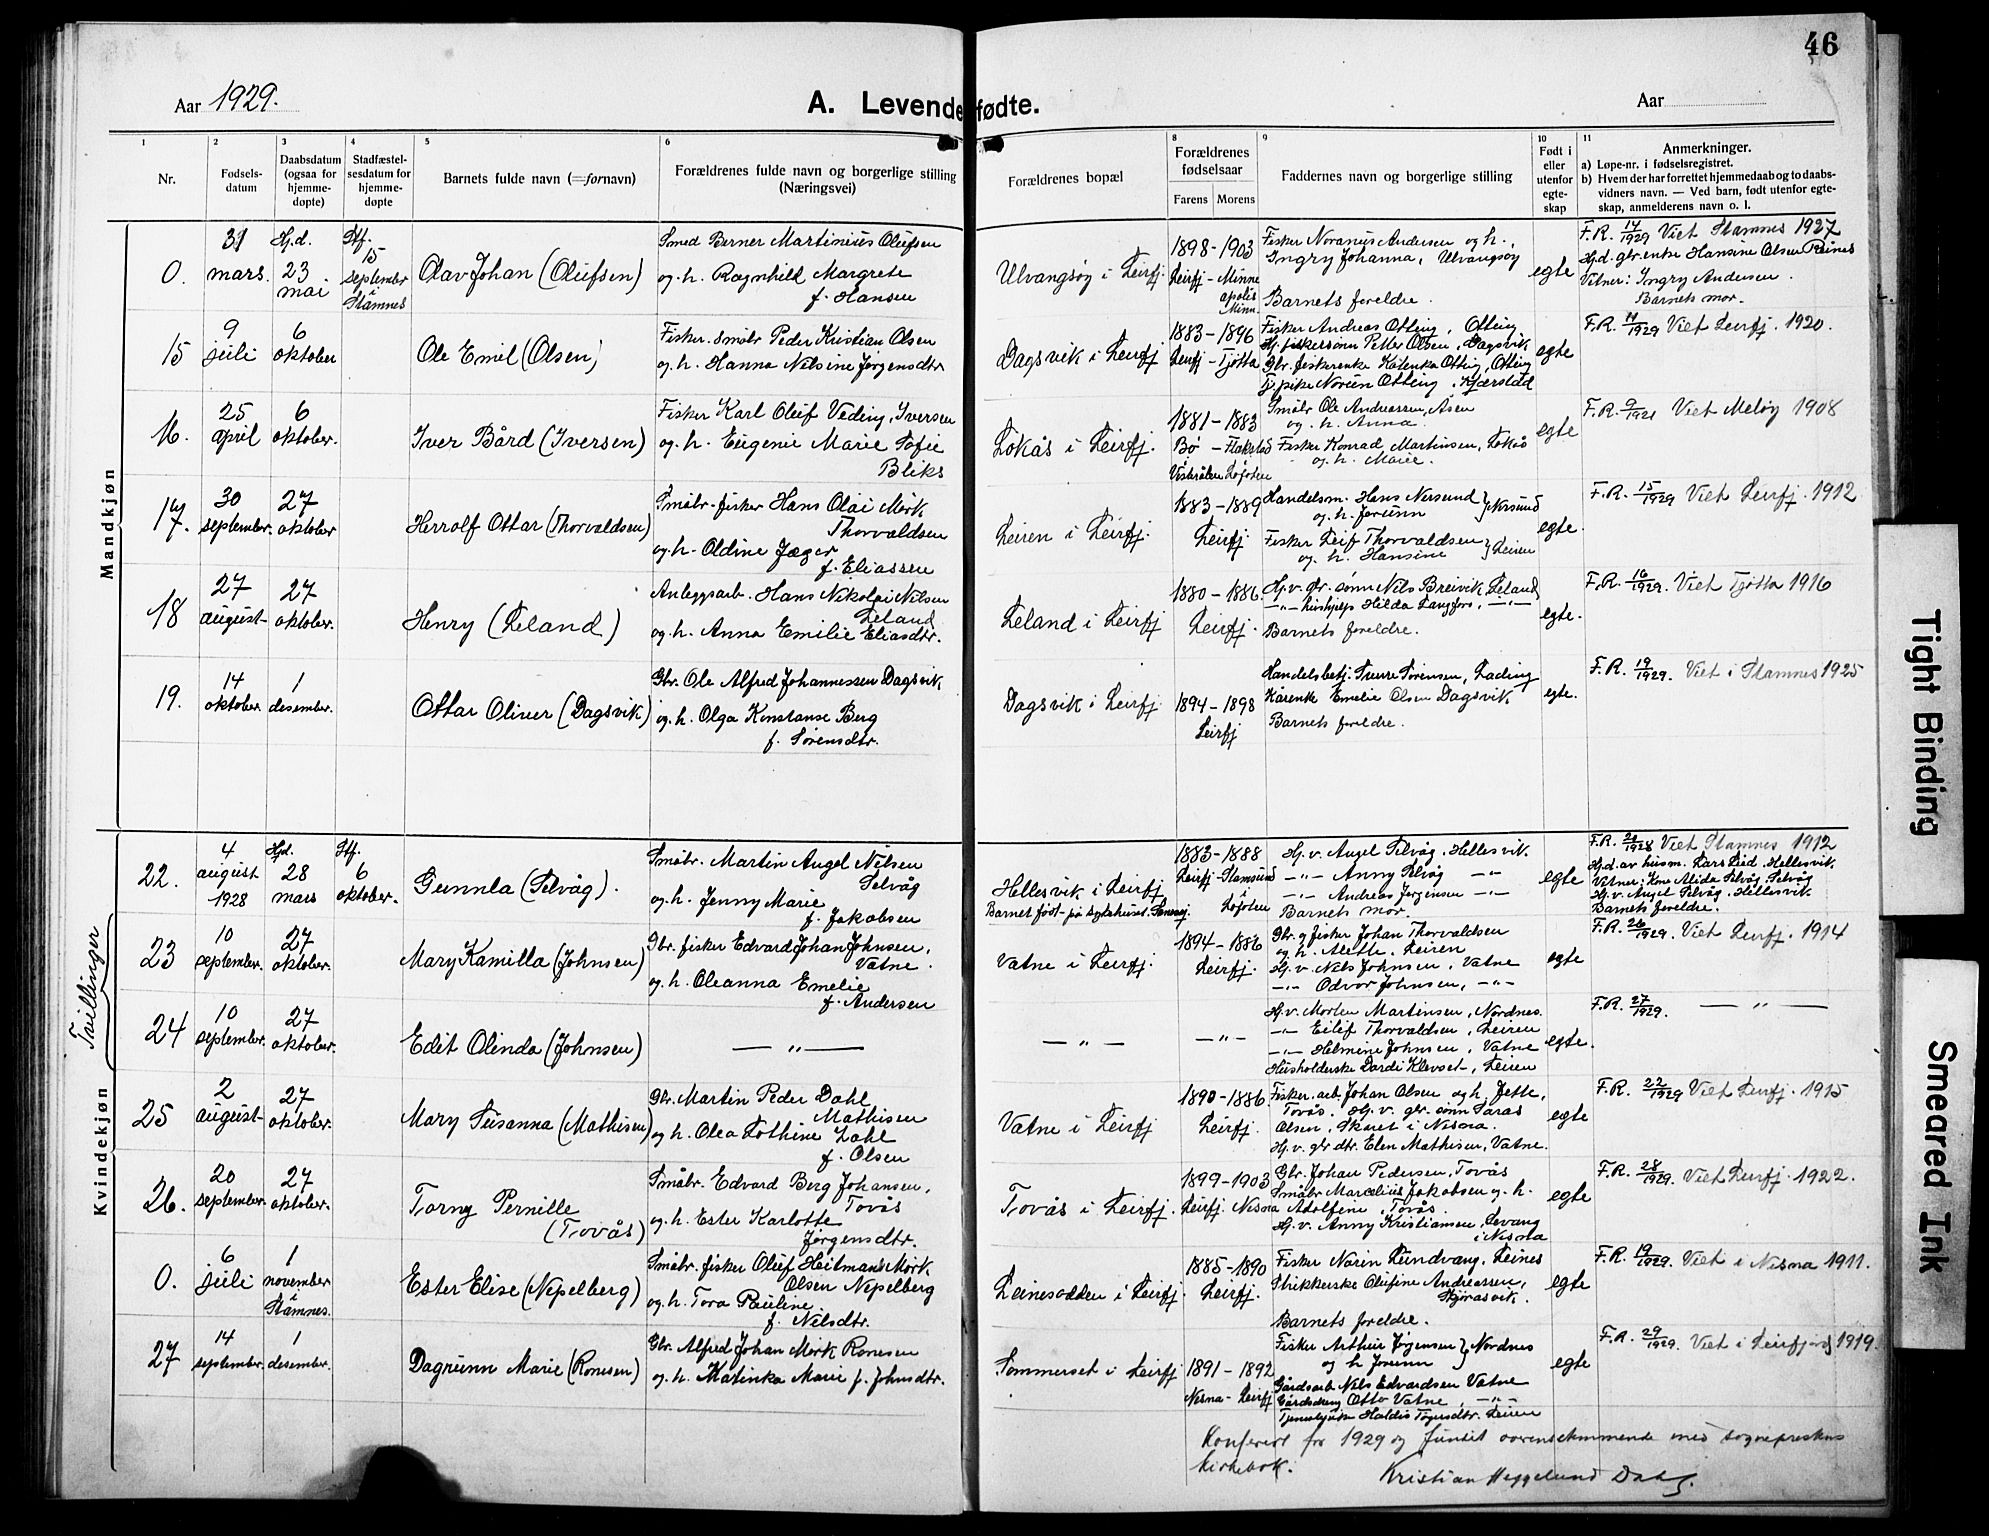 46
Aar 1929.
A. Levendefødte.
Aar
1 2 3 4 5 6 8 9 10 11
Nr.
Fødsels-
datum
Daabsdatum
(ogsaa for
hjemme-
døpte)
Stadfæstel-
sesdatum for
hjemme-
døpte
Barnets fulde navn (=fornavn)
Forældrenes fulde navn og borgerlige stilling
(Næringsvei)
Forældrenes bopæl
Forældrenes
fødselsaar
Farens Morens
Faddernes navn og borgerlige stilling
Født i
eller
utenfor
egte-
skap
Anmerkninger.
a) Løpe-nr. i fødselsregistret.
b) Hvem der har forrettet hjemmedaab og to daabs-
vidners navn. — Ved barn, født utenfor egte-
skap, anmelderens navn o. l.
Mandkjøn
0.
31
mars.
Hj.d.
23
mai
Stf.
15
september
i
Stamnes
Olav Johan (Olufsen)
Smed Berner Martinius Olufsen
og h. Ragnhild Margrete
f. Hansen
Ulvangsøy i Leirfj.
1898 - 1903
Leirfj - Minne
apolis
Minn.
Fisker Noranus Andersen og h.
Ingry Johanna, Ulvangsøy
Barnets foreldre.
egte
F.R. 14/1929 Viet Stamnes 1927
Hj.d. gbr.enke Hansine Olsen Reines
Vitner: Ingry Andersen
Barnets mor.
15
9
juli
6
oktober
Ole Emil (Olsen)
Fisker. småbr Peder Kristian Olsen
og h. Hanna Nilsine Jørgensdtr
Dagsvik i Leirfj
1883 - 1896
Leirfj - Tjøtta
Fisker Andreas Otting, Otting
Hj. fiskersønn Petter Olsen, Dagsvik
Gbr. fiskerenke Katenka Otting, Otting
Tj.pike Norunn Otting, Kjærstad
egte
F.R. 11/1929 Viet Leirfj. 1920.
16.
25
april
6
oktober.
Iver Bård (Iversen)
Fisker Karl Oluf Veding, Iversen
og h. Eugenie Marie Sofie
Bliks
Løkås i Leirfj.
1881 - 1883
Bø - Flakstad
Vesterålen Lofoten
Småbr Ole Andreassen, Åsen
og h. Anna.
Fisker Konrad Martinsen, Løkås
og h. Marie.
egte
F.R. 9/1921 Viet Meløy 1908
17.
30
september.
27
oktober
Herrolf Ottar (Thorvaldsen)
Småbr. fisker Hans Olai Mørk
Thorvaldsen
og h. Oldine Jæger
f. Eliassen
Leiren i Leirfj.
1883 - 1889
Leirfj.
Handelsm. Hans Nersund
og h. Jorunn } Nersund
Fisker Leif Thorvaldsen
og h. Hansine } Leiren
egte.
F.R. 15/1929 Viet Leirfj. 1912
18
27
august
27
oktober.
Henry (Leland)
Anleggsarb. Hans Nikolai Nilsen
Leland
og h. Anna Emilie Eliasdtr.
Leland i Leirfj
1880 - 1886
Leirfj.
Hj.v. gbr. sønn Nils Breivik Leland
—"— hushjelp Hilda Langfors, —"—
Barnets foreldre.
egte.
F.R. 16/1929. Viet Tjøtta 1916
19.
14
oktober.
1
desember.
Ottar Oliver (Dagsvik)
Gbr. Ole Alfred Johannessen Dagsvik
og h. Olga Konstanse Berg
f. Sørensdtr.
Dagsvik i Leirfj
1894 - 1898
Leirfj
Handelsbetj. Sverre Sørensen, Lading
Kårenke Emelie Olsen Dagsvik
Barnets foreldre.
egte.
F.R. 19/1929. Viet i Stamnes 1925
Kvindekjøn
Tvillinger
22.
4
august
1928
Hjd.
28
mars
Stf.
6
oktober.
Gunnla (Selvåg).
Småbr. Martin Angel Nilsen
Selvåg
og h. Jenny Marie
f. Jakobsen
Hellesvik i Leirfj
Barnet født på sykehuset.
1883 - 1888
Leirfj - Stamsund
i Lofoten
Hj.v. Angel Selvåg. Hellesvik.
—"— Anny Selvåg —"—
—"— Andreas Jørgensen —"—
Barnets mor.
egte
F.R. 21/1928 Viet Stamnes 1912
Hj.d. av husm. Lars Lied. Hellesvik
Vitner: Kone Alida Selvåg Selvåg
Hj.v. Angel Selvåg. Hellesvik
Barnets foreldre.
23
10
september.
27
oktober.
Mary Kamilla (Johnsen)
Gbr. fisker Edvard Johan Johnsen,
Vatne.
og h. Oleanna Emelie
f. Andersen
Vatne i Leirfj.
1894 - 1886
Leirfj.
Gbr. og fisker Johan Thorvaldsen
og h. Alette. Leiren
Hj.v. Nils Johnsen, Vatne
—"— Odvar Johnsen, —"—
egte
F.R. 26/1929. Viet Leirfj. 1914
24
10
september.
27
oktober.
Edit Olinda (Johnsen)
— " —
— " —
— " —
Hj.v. Morten Martinsen, Nordnes.
—"— Eilif Thorvaldsen, Leiren
—"— Helmine Johnsen, Vatne
Husholderske Dardi Klevset, Leiren
egte.
F.R. 27/1929. — " —
25
2
august
27
oktober.
Mary Susanna (Mathisen)
Gbr. Martin Peder Dahl
Mathisen
og h. Olea Lothine Dahl
f. Olsen
Vatne i Leirfj
1890 - 1886
Leirfj.
Fisker. arb. Johan Olsen og h. Jette,
Tovås. Hj.v. gbr. sønn Saras
Olsen, Skaret i Nesna.
Hj.v. gbr dtr. Elen Mathisen, Vatne.
egte
F.R. 22/1929 Viet Leirfj. 1915
26.
20
september.
27
oktober.
Torny Pernille
(Tovås)
Småbr. Edvard Berg Johansen,
Tovås
og h. Ester Karlotte
Jørgensdtr.
Tovås i Leirfj.
1899 - 1903
Leirfj. Nesna
Gbr. Johan Pedersen, Tovås
Småbr Marcelius Jakobsen og h.
Adolfine, Tovås.
Hj.v. Anny Kristiansen, Levang
i Nesna
egte
F.R. 28/1929. Viet Leirfj. 1922.
0.
6
juli
1
november
i
Stamnes.
Ester Elise (Nepelberg)
Småbr. fisker Oluf Heitman Mørk
Olsen Nepelberg
og h. Tora Pauline
f. Nilsdtr.
Leinesodden i Leirfj.
1885 - 1890
Leirfj.
Fisker Narin Lundvang, Leines
Strikkerske Olufine Andreassen,
Skjeråsvik.
Barnets foreldre.
egte
F.R. 19/1929. Viet i Nesna 1911.
27
14
september.
1
desember.
Dagrunn Marie (Ronesen)
Gbr. Alfred Johan Mørk Ronesen
og h. Katinka Marie f. Johnsdtr.
Sommerset i Leirfj
1891 - 1892
Nesna - Leirfj
Fisker Arthur Jørgensen
og h Jorunn } Nordnes
Gårdsarb. Nils Edvardsen Vatne
Gårdsdreng Otto Vatne, —"—
Tjenestepike Haldis Tøgersdtr. Leiren
egte
F.R. 29/1929. Viet i Leirfjord 1919.
Konferert for 1929 og funnet overensstemmende med sogneprestens
kirkebok.
Kristian Heggelund Dahl.
Tight Binding
Smeared Ink